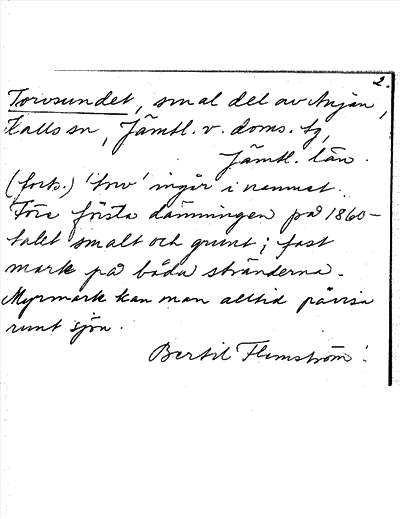 2.
Torvsundet, smal del av Anjan,
Kalls sn, Jämtl. v. doms. tg,
Jämtl. län.
(forts.) 'torv' ingår i namnet.
Före första dämningen på 1860-
talet smalt och grunt; fast
mark på båda stränderna.
Myrmark kan man alltid påvisa
runt sjön.
Bertil Flemström.